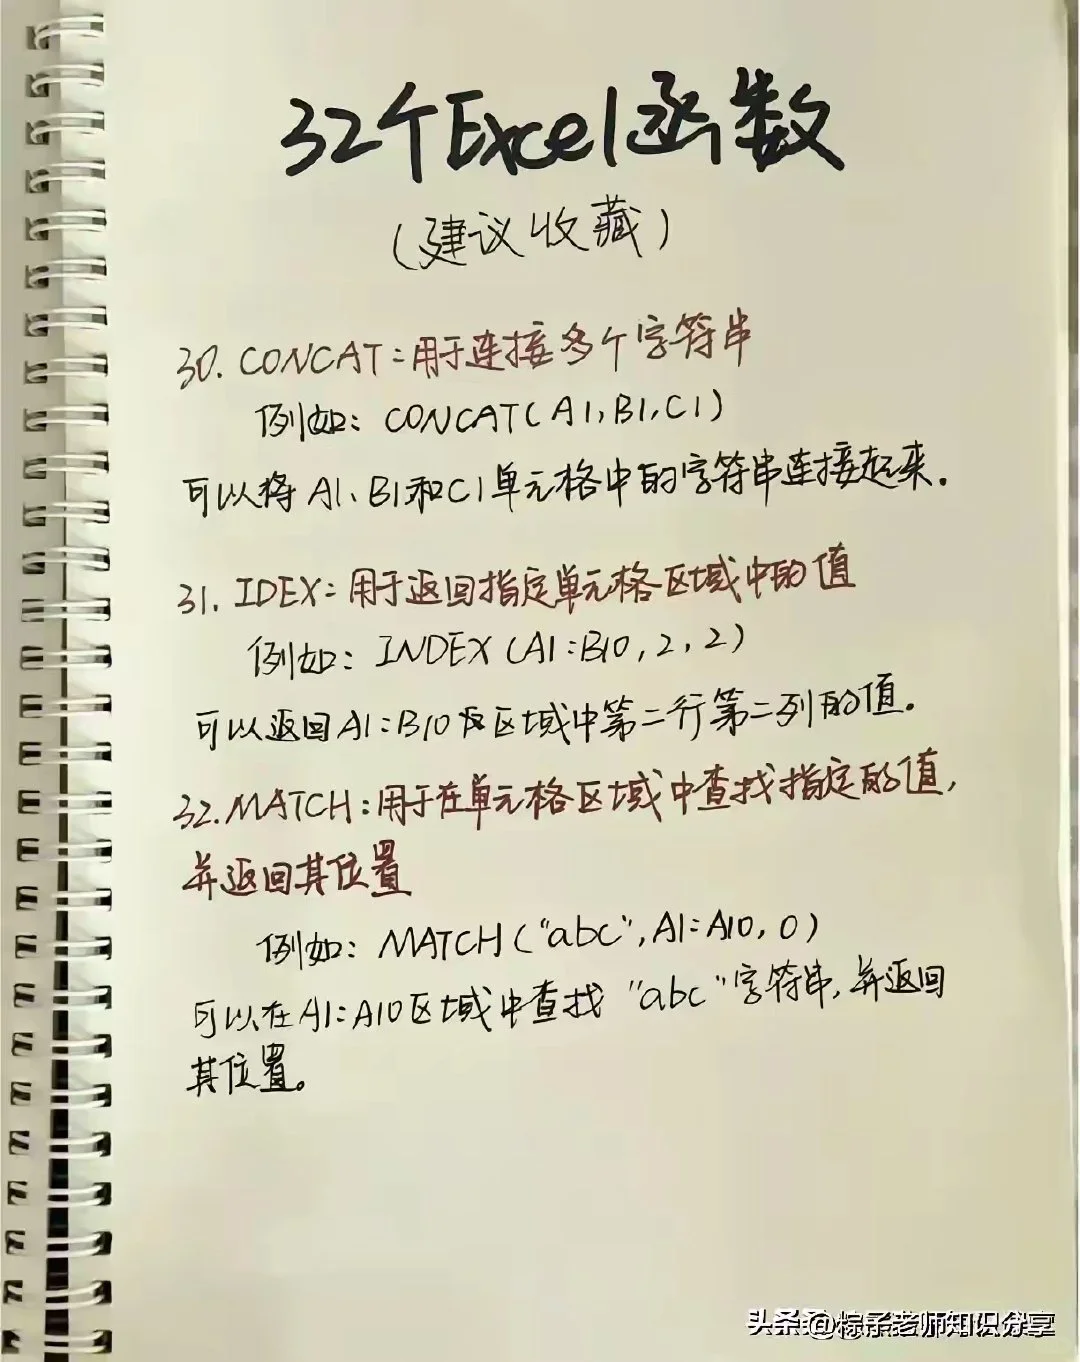 32个Excel函数
(建议收藏)
30.CONCAT:用于连接多个字符串
例如:CONCAT(A1,B1,C1)
可以将A1、B1和C1单元格中的字符串连接起来.
31.IDEX:用于返回指定单元格区域中的值
例如:INDEX(A1:B10,2,2)
可以返回A1:B10区域中第二行第二列的值.
32.MATCH:用于在单元格区域中查找指定的值,
并返回其位置
例如:MATCH("abc",A1:A10,0)
可以在A1:A10区域中查找"abc"字符串,并返回
其位置。
头条 @棕子老师知识分享